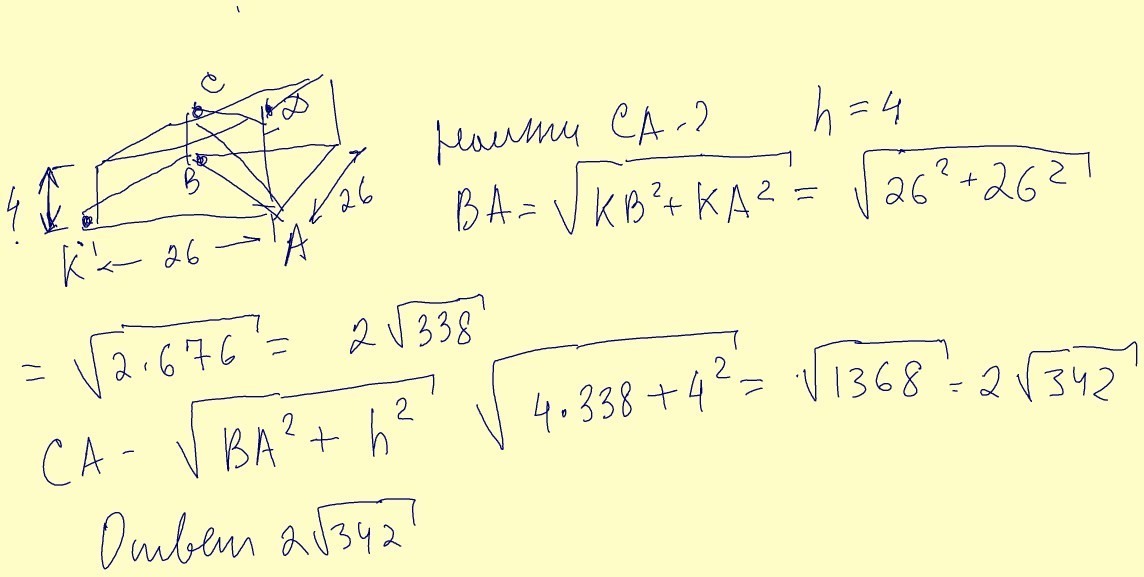 C
D
B
4
26
K
← 26 →
A
Найти CA-?
h = 4
BA = √(KB² + KA²) = √(26² + 26²)
= √(2·676) = 2√338
CA - √(BA² + h²) √(4·338 + 4²) = √1368 = 2√342
Ответ 2√342